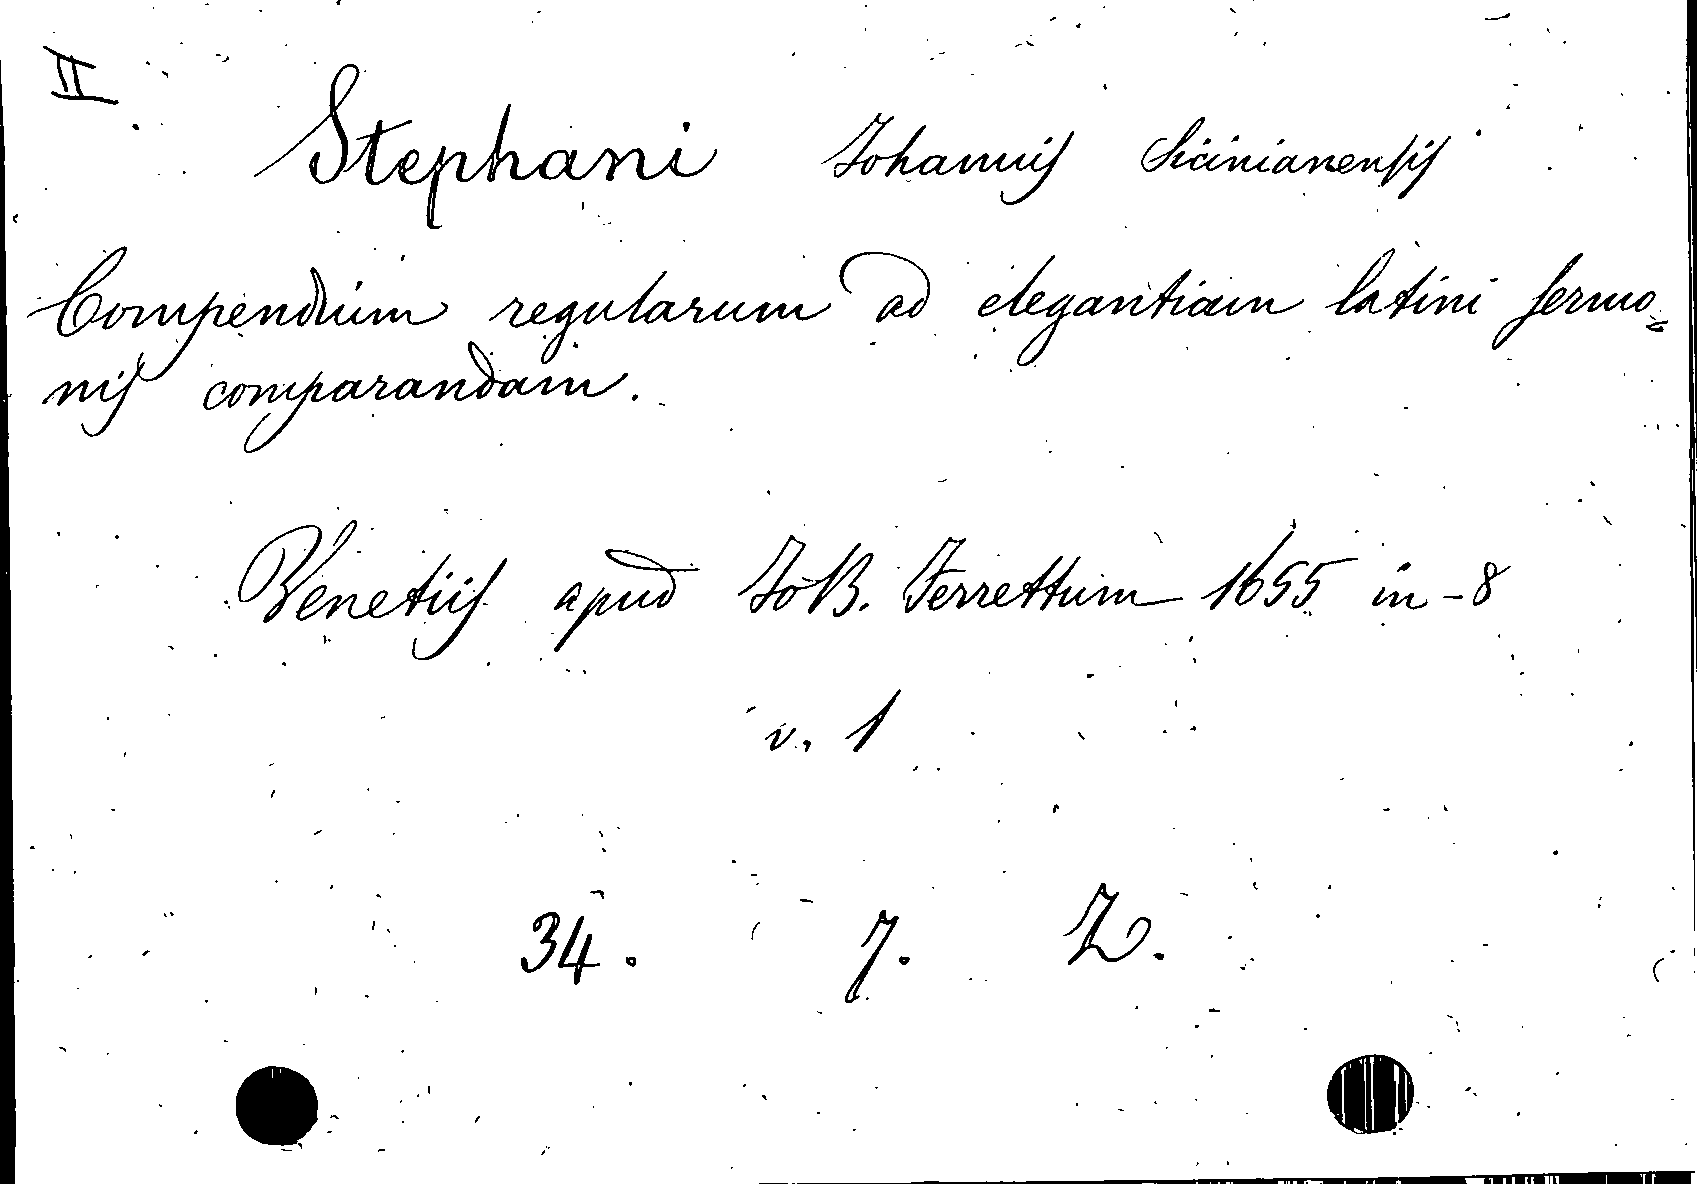 II
Stephani Johannis Sicinianensis
Compendium regularum ad elegantiam latini sermo=
nis comparandam.
Venetiis apud Jo B. Ferrettum 1655 in-8
v. 1
34. 7. Z.